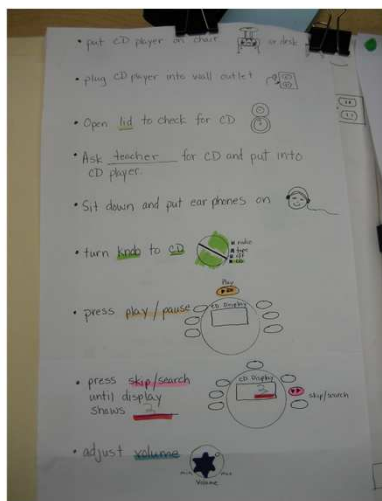 • put CD player on chair or desk
• plug CD player into wall outlet
• Open lid to check for CD
• Ask teacher for CD and put into
CD player.
• Sit down and put ear phones on
• turn knob to CD
radio
tape
Play
• press play/pause
CD Display
• press skip/search
until display
shows 2
CD Display
2
skip/search
• adjust volume
min
max
Volume